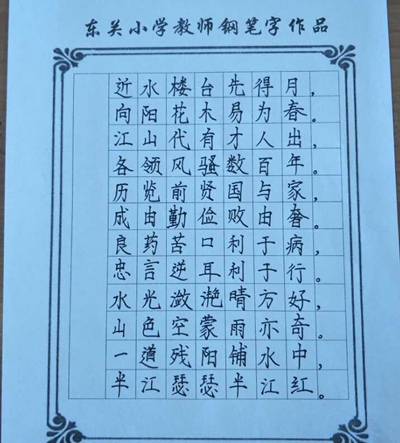 东关小学教师钢笔字作品
近水楼台先得月，
向阳花木易为春。
江山代有才人出，
各领风骚数百年。
历览前贤国与家，
成由勤俭败由奢。
良药苦口利于病，
忠言逆耳利于行。
水光潋滟晴方好，
山色空蒙雨亦奇。
一道残阳铺水中，
半江瑟瑟半江红。